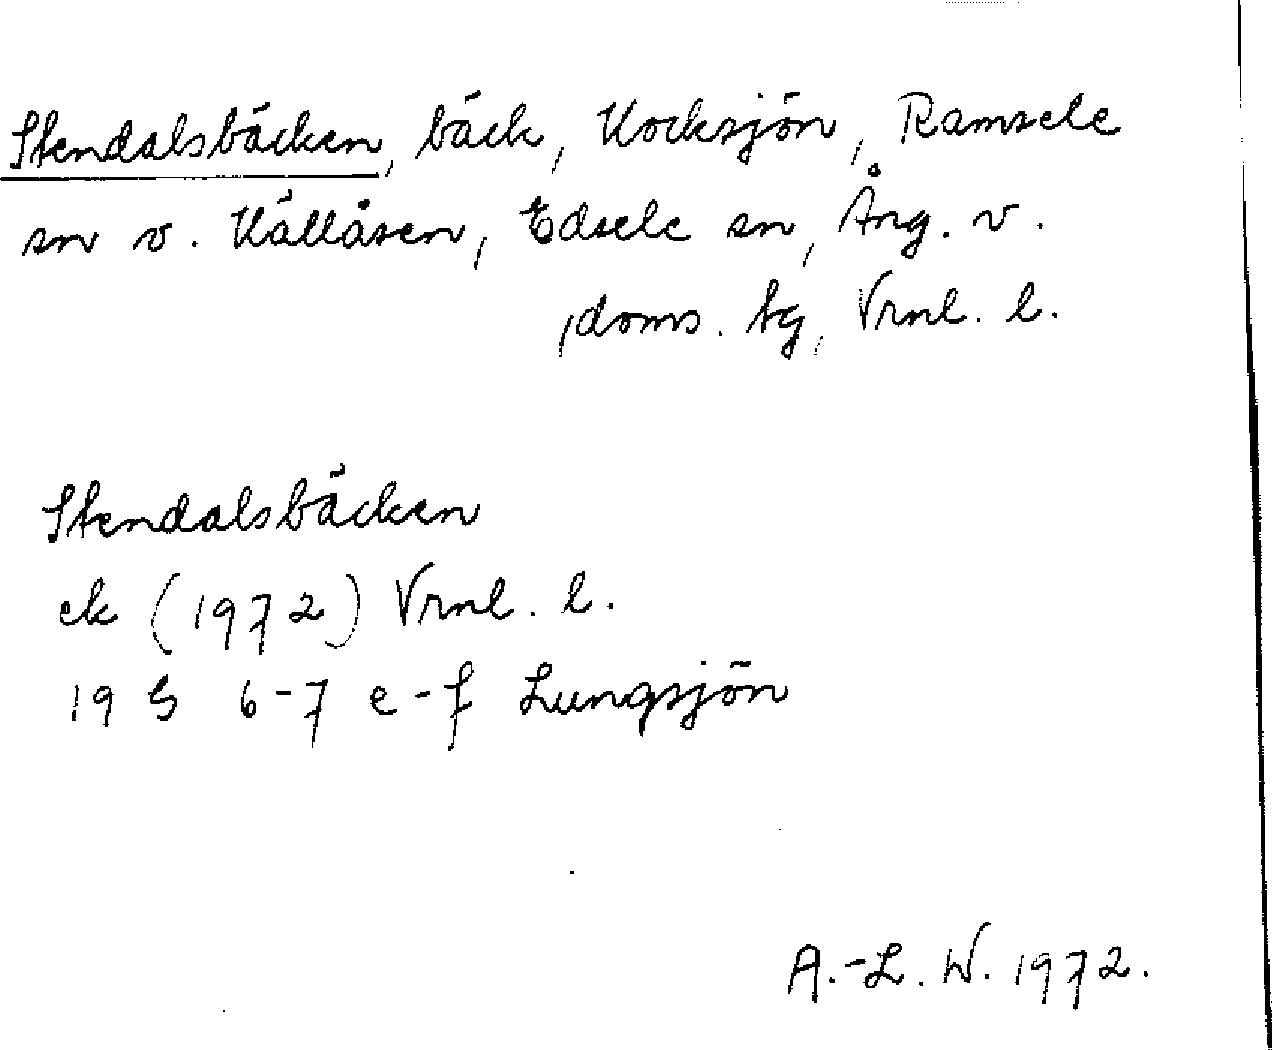 Stendalsbäcken, bäck, Kocksjön, Ramsele
sn o. Källåsen, Edsele sn, Ång. v.
doms. tg, Vrnl. l.
Stendalsbäcken
ek (1972) Vrnl. l.
19 G 6-7 e-f Lungsjön
A.-L. W. 1972.